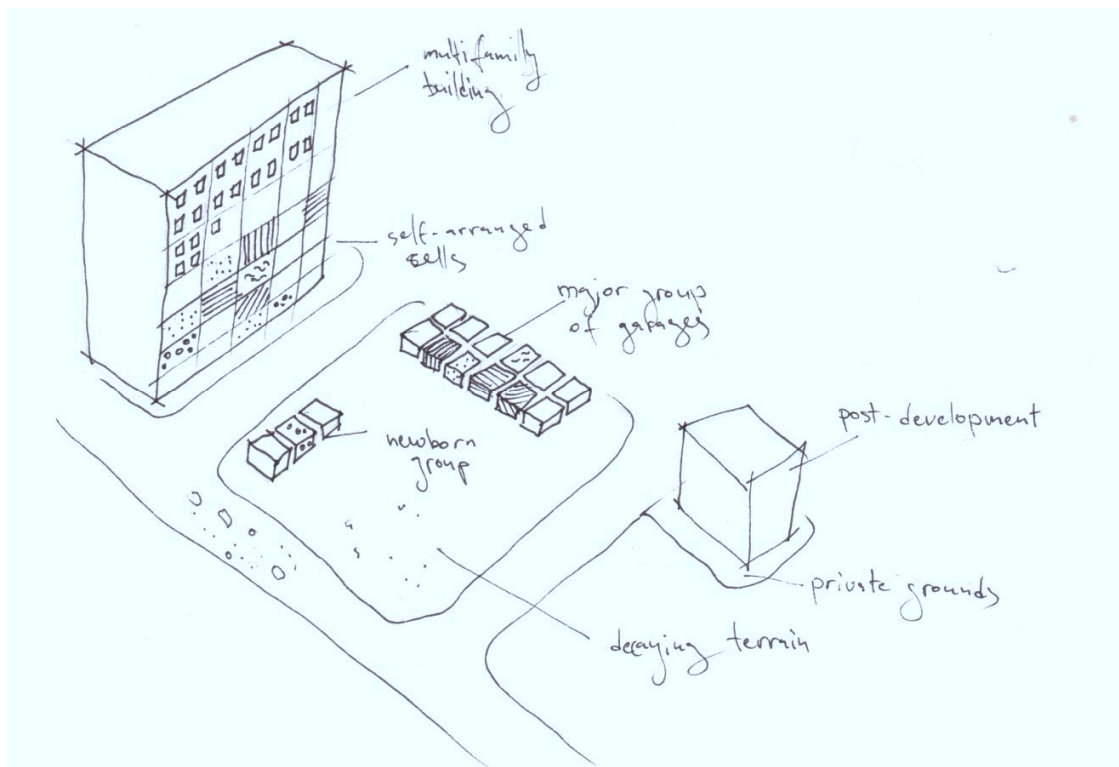 multifamily
building
self-arranged
sells
major group
of garages
newborn
group
post-development
private grounds
decaying terrain